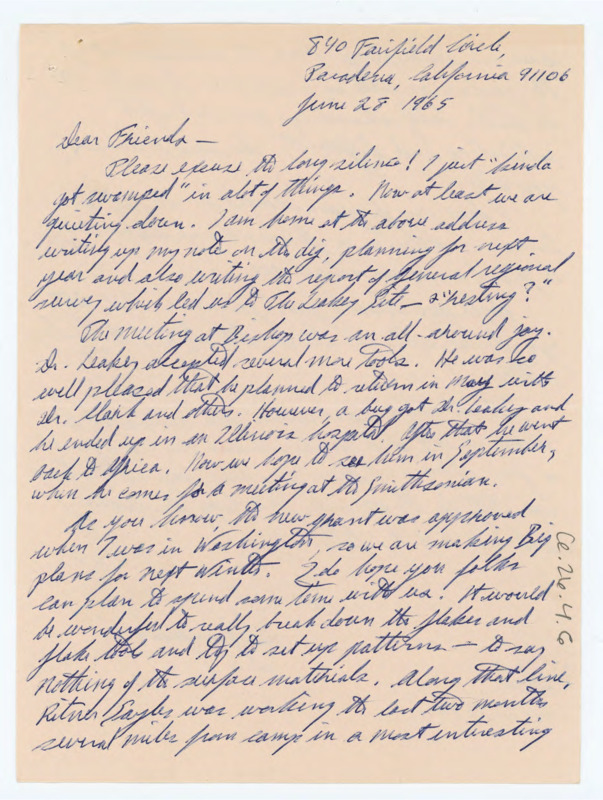 840 Fairfield Circle,
Pasadena, California 91106
June 28 1965
Dear Friends —
Please excuse the long silence! I just "kinda
got swamped" in a lot of things. Now at least we are
quieting down. I am home at the above address
writing up my notes on the dig, planning for next
year and also writing the report of general regional
survey which led us to The Leakey Site — & "resting?"
The meeting at Bishop was an all-around joy.
Dr. Leakey accepted several more tools. He was so
well pleased that he planned to return in May with
Dr. Clark and others. However, a bug got Dr. Leakey and
he ended up in an Illinois hospital. After that he went
back to Africa. Now we hope to see him in September,
when he comes for a meeting at the Smithsonian.
As you know, the new grant was approved
when I was in Washington, so we are making Big
plans for next winter. I do hope you folks
can plan to spend some time with us. It would
be wonderful to really break down the flakes and
flake tools and try to set up patterns — to say
nothing of the surface materials. Along that line,
Ritner Sayles was working the last two months
several miles from camp in a most interesting
Ce.26.4.6